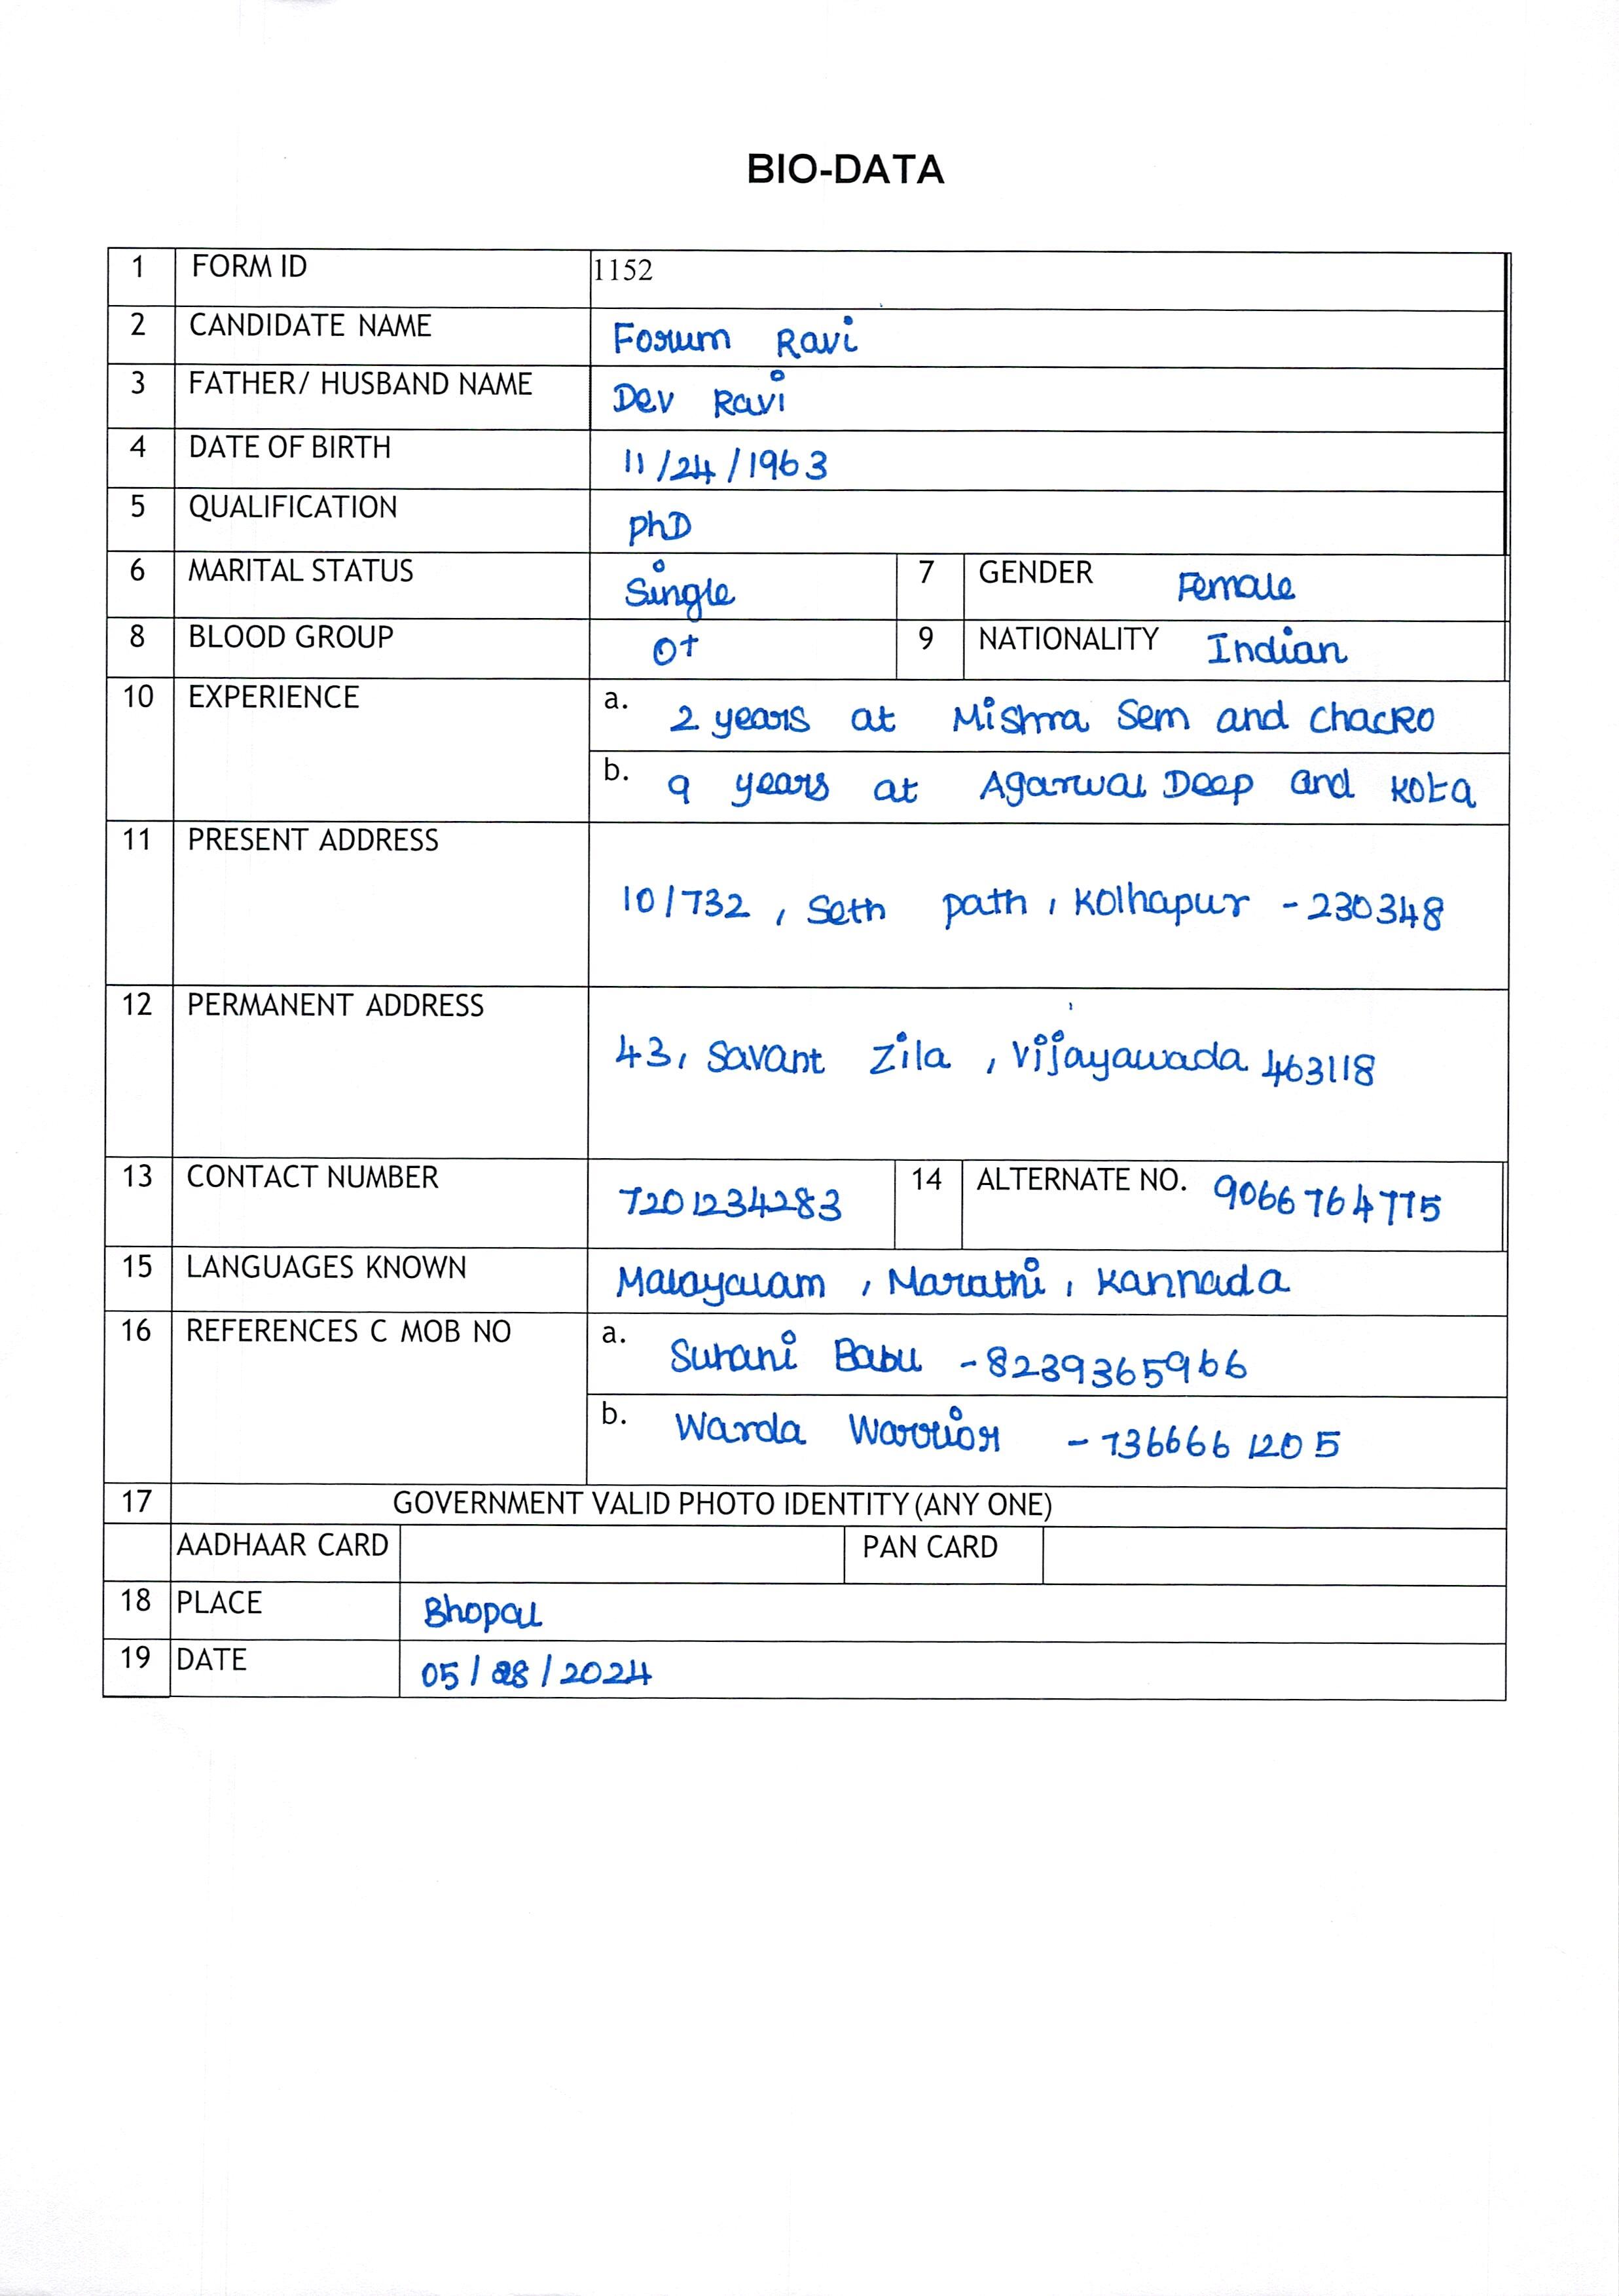 BIO-DATA
1 FORM ID 1152
2 CANDIDATE NAME Forum Ravi
3 FATHER/ HUSBAND NAME Dev Ravi
4 DATE OF BIRTH 11/24/1963
5 QUALIFICATION PhD
6 MARITAL STATUS Single 7 GENDER Female
8 BLOOD GROUP O+ 9 NATIONALITY Indian
10 EXPERIENCE a. 2 years at Mishra Sem and Chacko
b. 9 years at Agarwal Deep and Kota
11 PRESENT ADDRESS
10/732, Seth path, Kolhapur - 230348
12 PERMANENT ADDRESS
43, Savant Zila, Vijayawada 463118
13 CONTACT NUMBER 7201234283 14 ALTERNATE NO. 9066764775
15 LANGUAGES KNOWN Malayalam, Marathi, Kannada
16 REFERENCES C MOB NO a. Suhani Babu - 8239365966
b. Warda Warrior - 7366661205
17 GOVERNMENT VALID PHOTO IDENTITY (ANY ONE)
AADHAAR CARD PAN CARD
18 PLACE Bhopal
19 DATE 05/28/2024